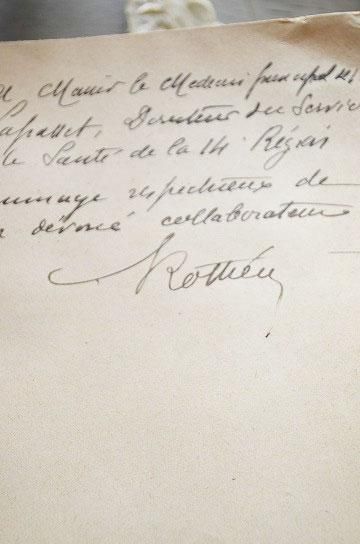 le Medecin principal de
Lapasset, Directeur du Service
de Santé de la 14e Région
hommage respectueux de
dévoué collaborateur
Rothéa